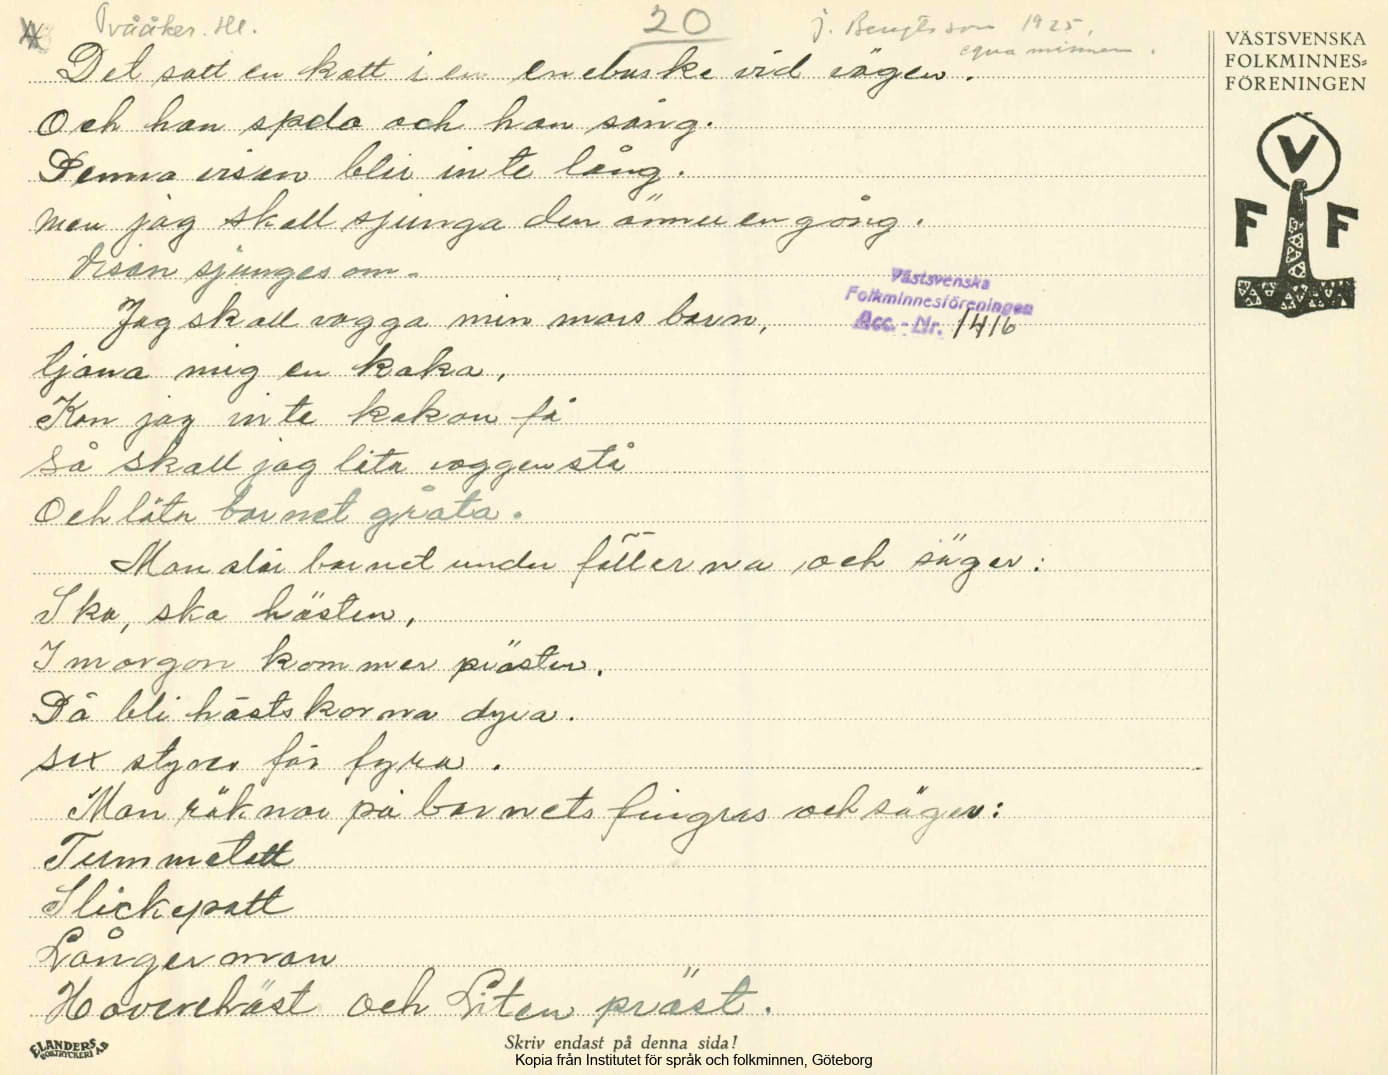 Tvååker. Hl.
20
J. Bengtsson 1925,
egna minnen.
VÄSTSVENSKA
FOLKMINNES-
FÖRENINGEN
V
F F
Det satt en katt i en enebuske vid vägen.
Och han spela och han sång.
Denna visan blir inte lång.
Men jag skall sjunga den ännu en gång.
Visan sjunges om.
Västsvenska
Folkminnesföreningen
Acc. - Nr. 1416
Jag skall vagga min mors barn,
tjäna mig en kaka,
Kan jag inte kakan få
Så skall jag låta vaggen stå
Och låta barnet gråta.
Man slår barnet under fötterna och säger:
Sko, ska hästen,
I morgon kommer prästen.
Då bli hästskorna dyra.
sex styver för fyra.
Man räknar på barnets fingrar och säger:
Tummetott
Slickepott
Långerman
Haverehäst och Liten präst.
ELANDERS
BOKTRYCKERI A.B
Skriv endast på denna sida!
Kopia från Institutet för språk och folkminnen, Göteborg